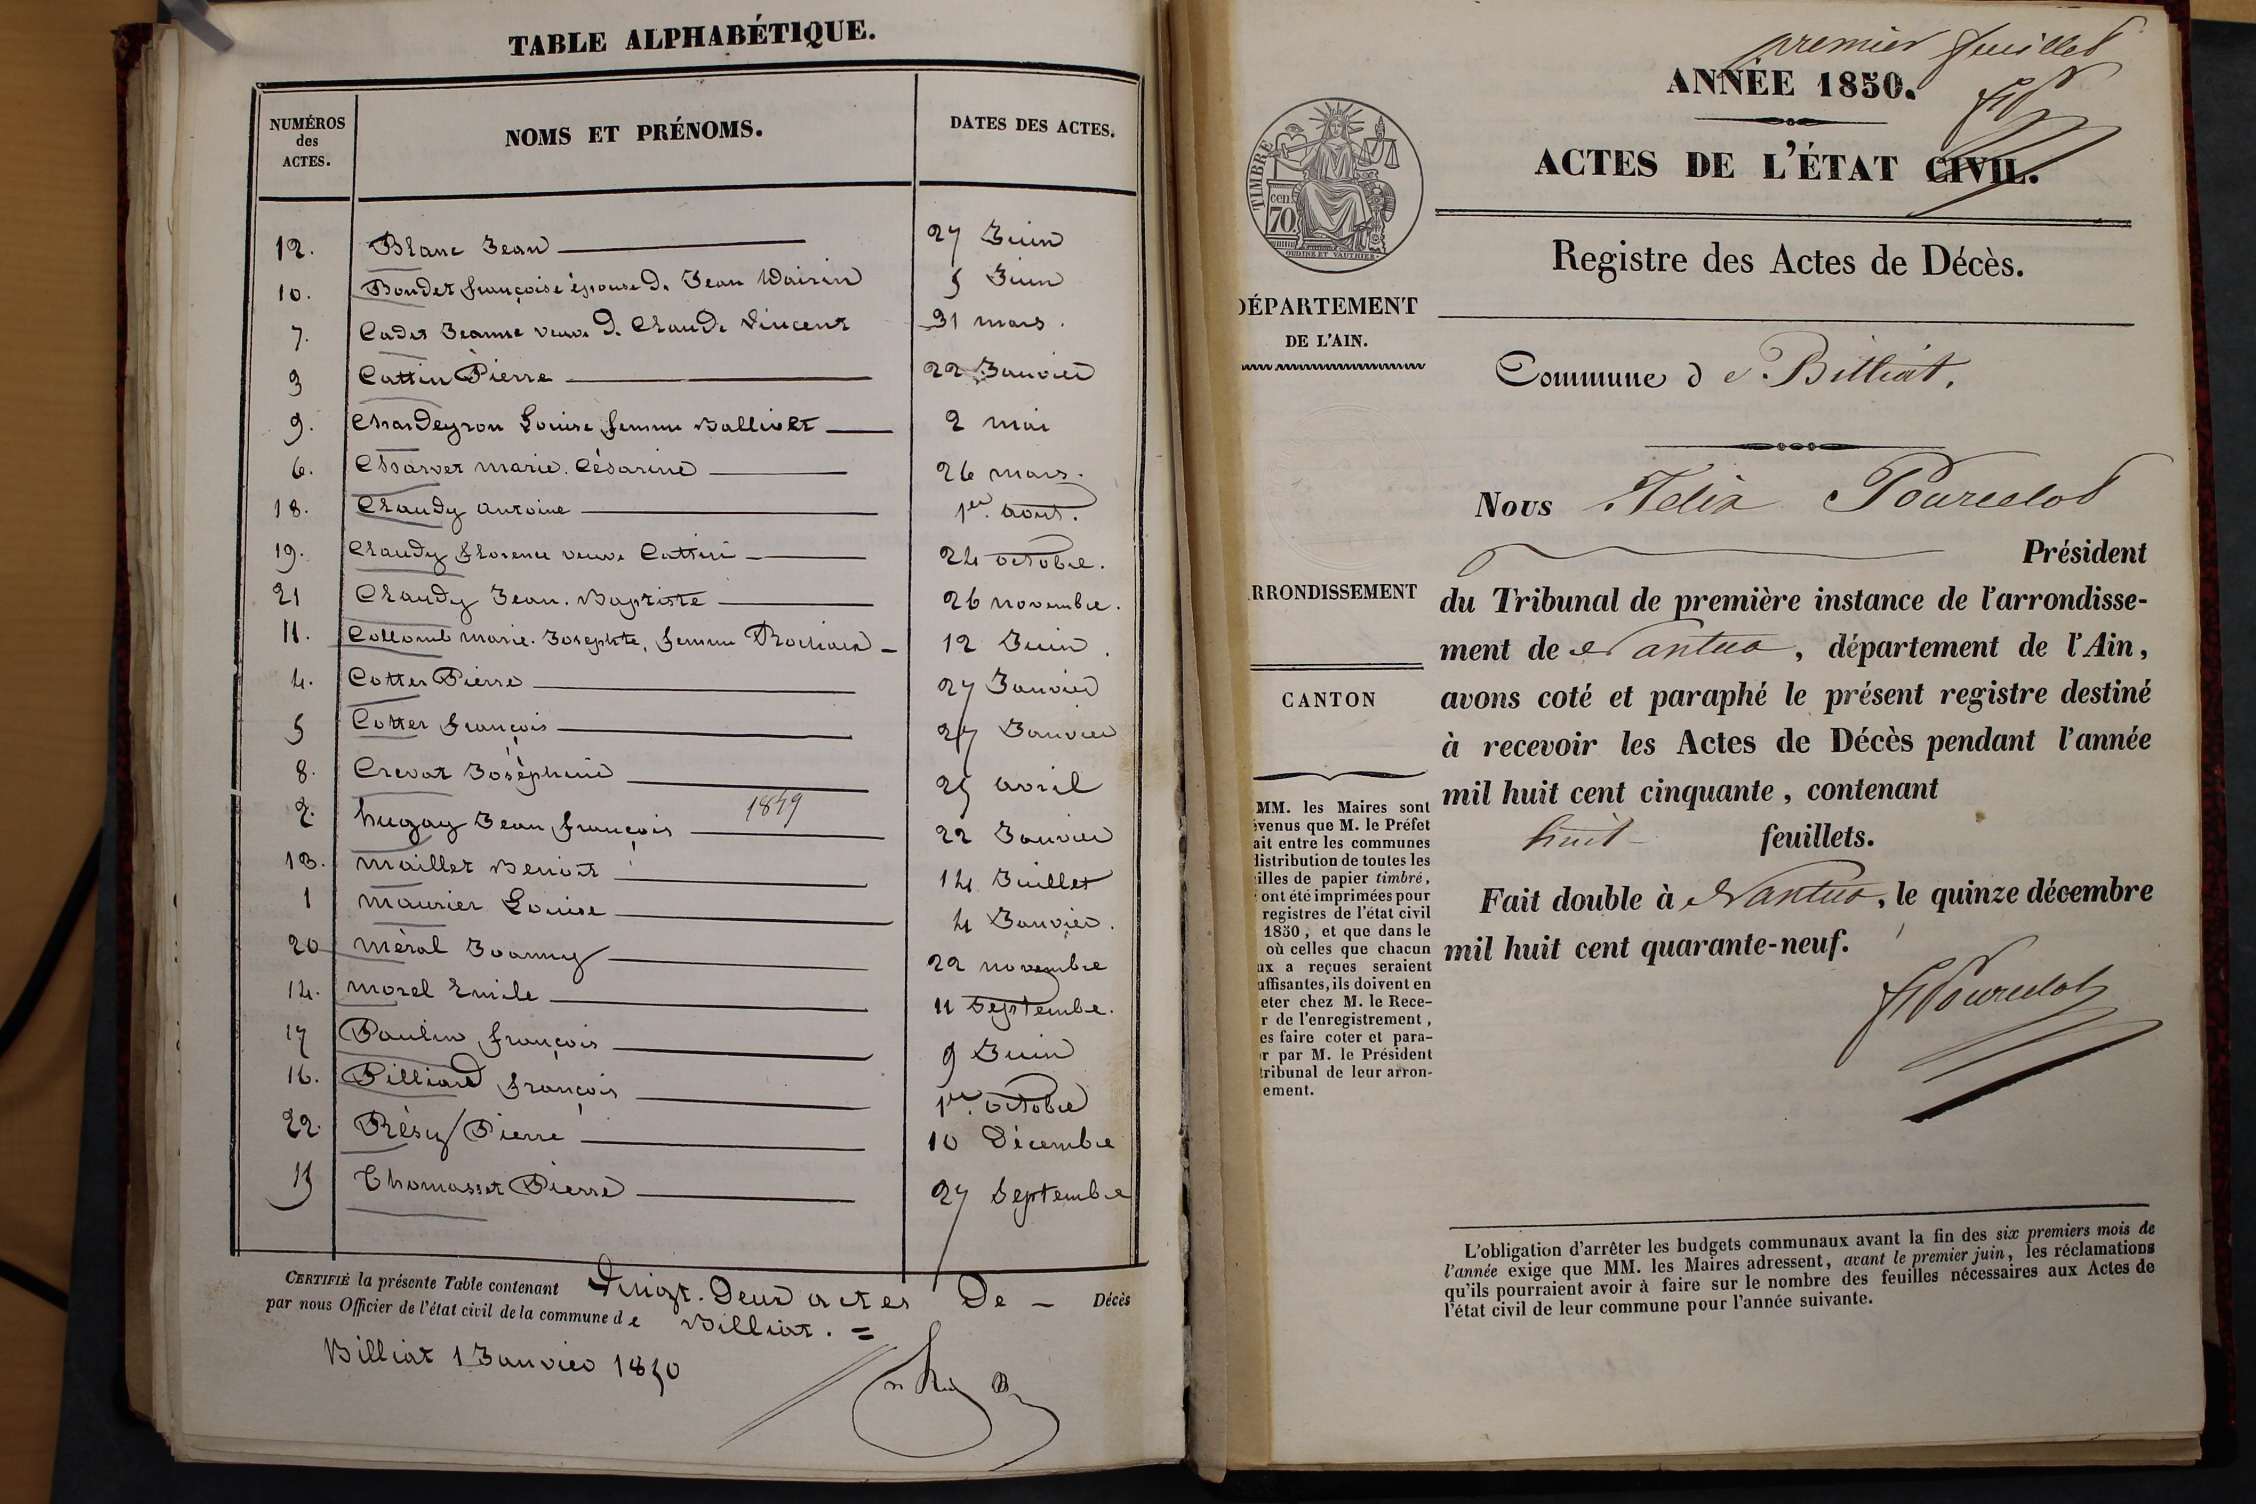 TABLE ALPHABÉTIQUE.
NUMÉROS des ACTES. NOMS ET PRÉNOMS. DATES DES ACTES.
12. Blanc Jean 27 Juin
10. Boudet françoise épouse de Jean 5 Juin
7. Cadet Jeanne veuve de Claude Vincent 31 mars.
3 Cottin Pierre 22 Janvier
9. Chardeyron Louise femme Ballivet 2 mai
6. Charvet marie. Césarine 26 mars.
18. Chaudy antoine 1er. aout.
19. Chaudy florence veuve Cottin 24 octobre.
21 Chaudy Jean. Baptiste 26 novembre.
11. Collomb marie. Josephte, femme 12 Juin.
4. Cotter Pierre 27 Janvier
5 Cotter françois 27 Janvier
8. Crevat Joséphine 25 avril
2. hugay Jean françois 1849 22 Janvier
13. maillet Benoit 14 Juillet
1 maurier Louise 4 Janvier.
20 méral Joanny 22 novembre
14. morel Emile 11 Septembre.
17 Paulin françois 9 Juin
16. Pilliard françois 1er. octobre
22. Résy Pierre 10 Décembre
15 Thomasset Pierre 27 Septembre
CERTIFIÉ la présente Table contenant Vingt. Deux actes De Décès
par nous Officier de l'état civil de la commune de Billiat. =
Billiat 1 Janvier 1850
premier feuillet
ANNÉE 1850.
ACTES DE L'ÉTAT CIVIL.
TIMBRE
cen. 70
OUDINE ET VAUTHIER
Registre des Actes de Décès.
DÉPARTEMENT
DE L'AIN.
Commune de Billiat.
Nous Félix Pourcelot
Président
ARRONDISSEMENT
du Tribunal de première instance de l'arrondisse-
ment de Nantua, département de l'Ain,
CANTON
avons coté et paraphé le présent registre destiné
à recevoir les Actes de Décès pendant l'année
mil huit cent cinquante, contenant
huit feuillets.
Fait double à Nantua, le quinze décembre
mil huit cent quarante-neuf.
FPourcelot
MM. les Maires sont
évenus que M. le Préfet
ait entre les communes
distribution de toutes les
illes de papier timbré,
ont été imprimées pour
registres de l'état civil
1850, et que dans le
où celles que chacun
ux a reçues seraient
uffisantes, ils doivent en
eter chez M. le Rece-
r de l'enregistrement,
es faire coter et para-
r par M. le Président
tribunal de leur arron-
ement.
L'obligation d'arrêter les budgets communaux avant la fin des six premiers mois de
l'année exige que MM. les Maires adressent, avant le premier juin, les réclamations
qu'ils pourraient avoir à faire sur le nombre des feuilles nécessaires aux Actes de
l'état civil de leur commune pour l'année suivante.